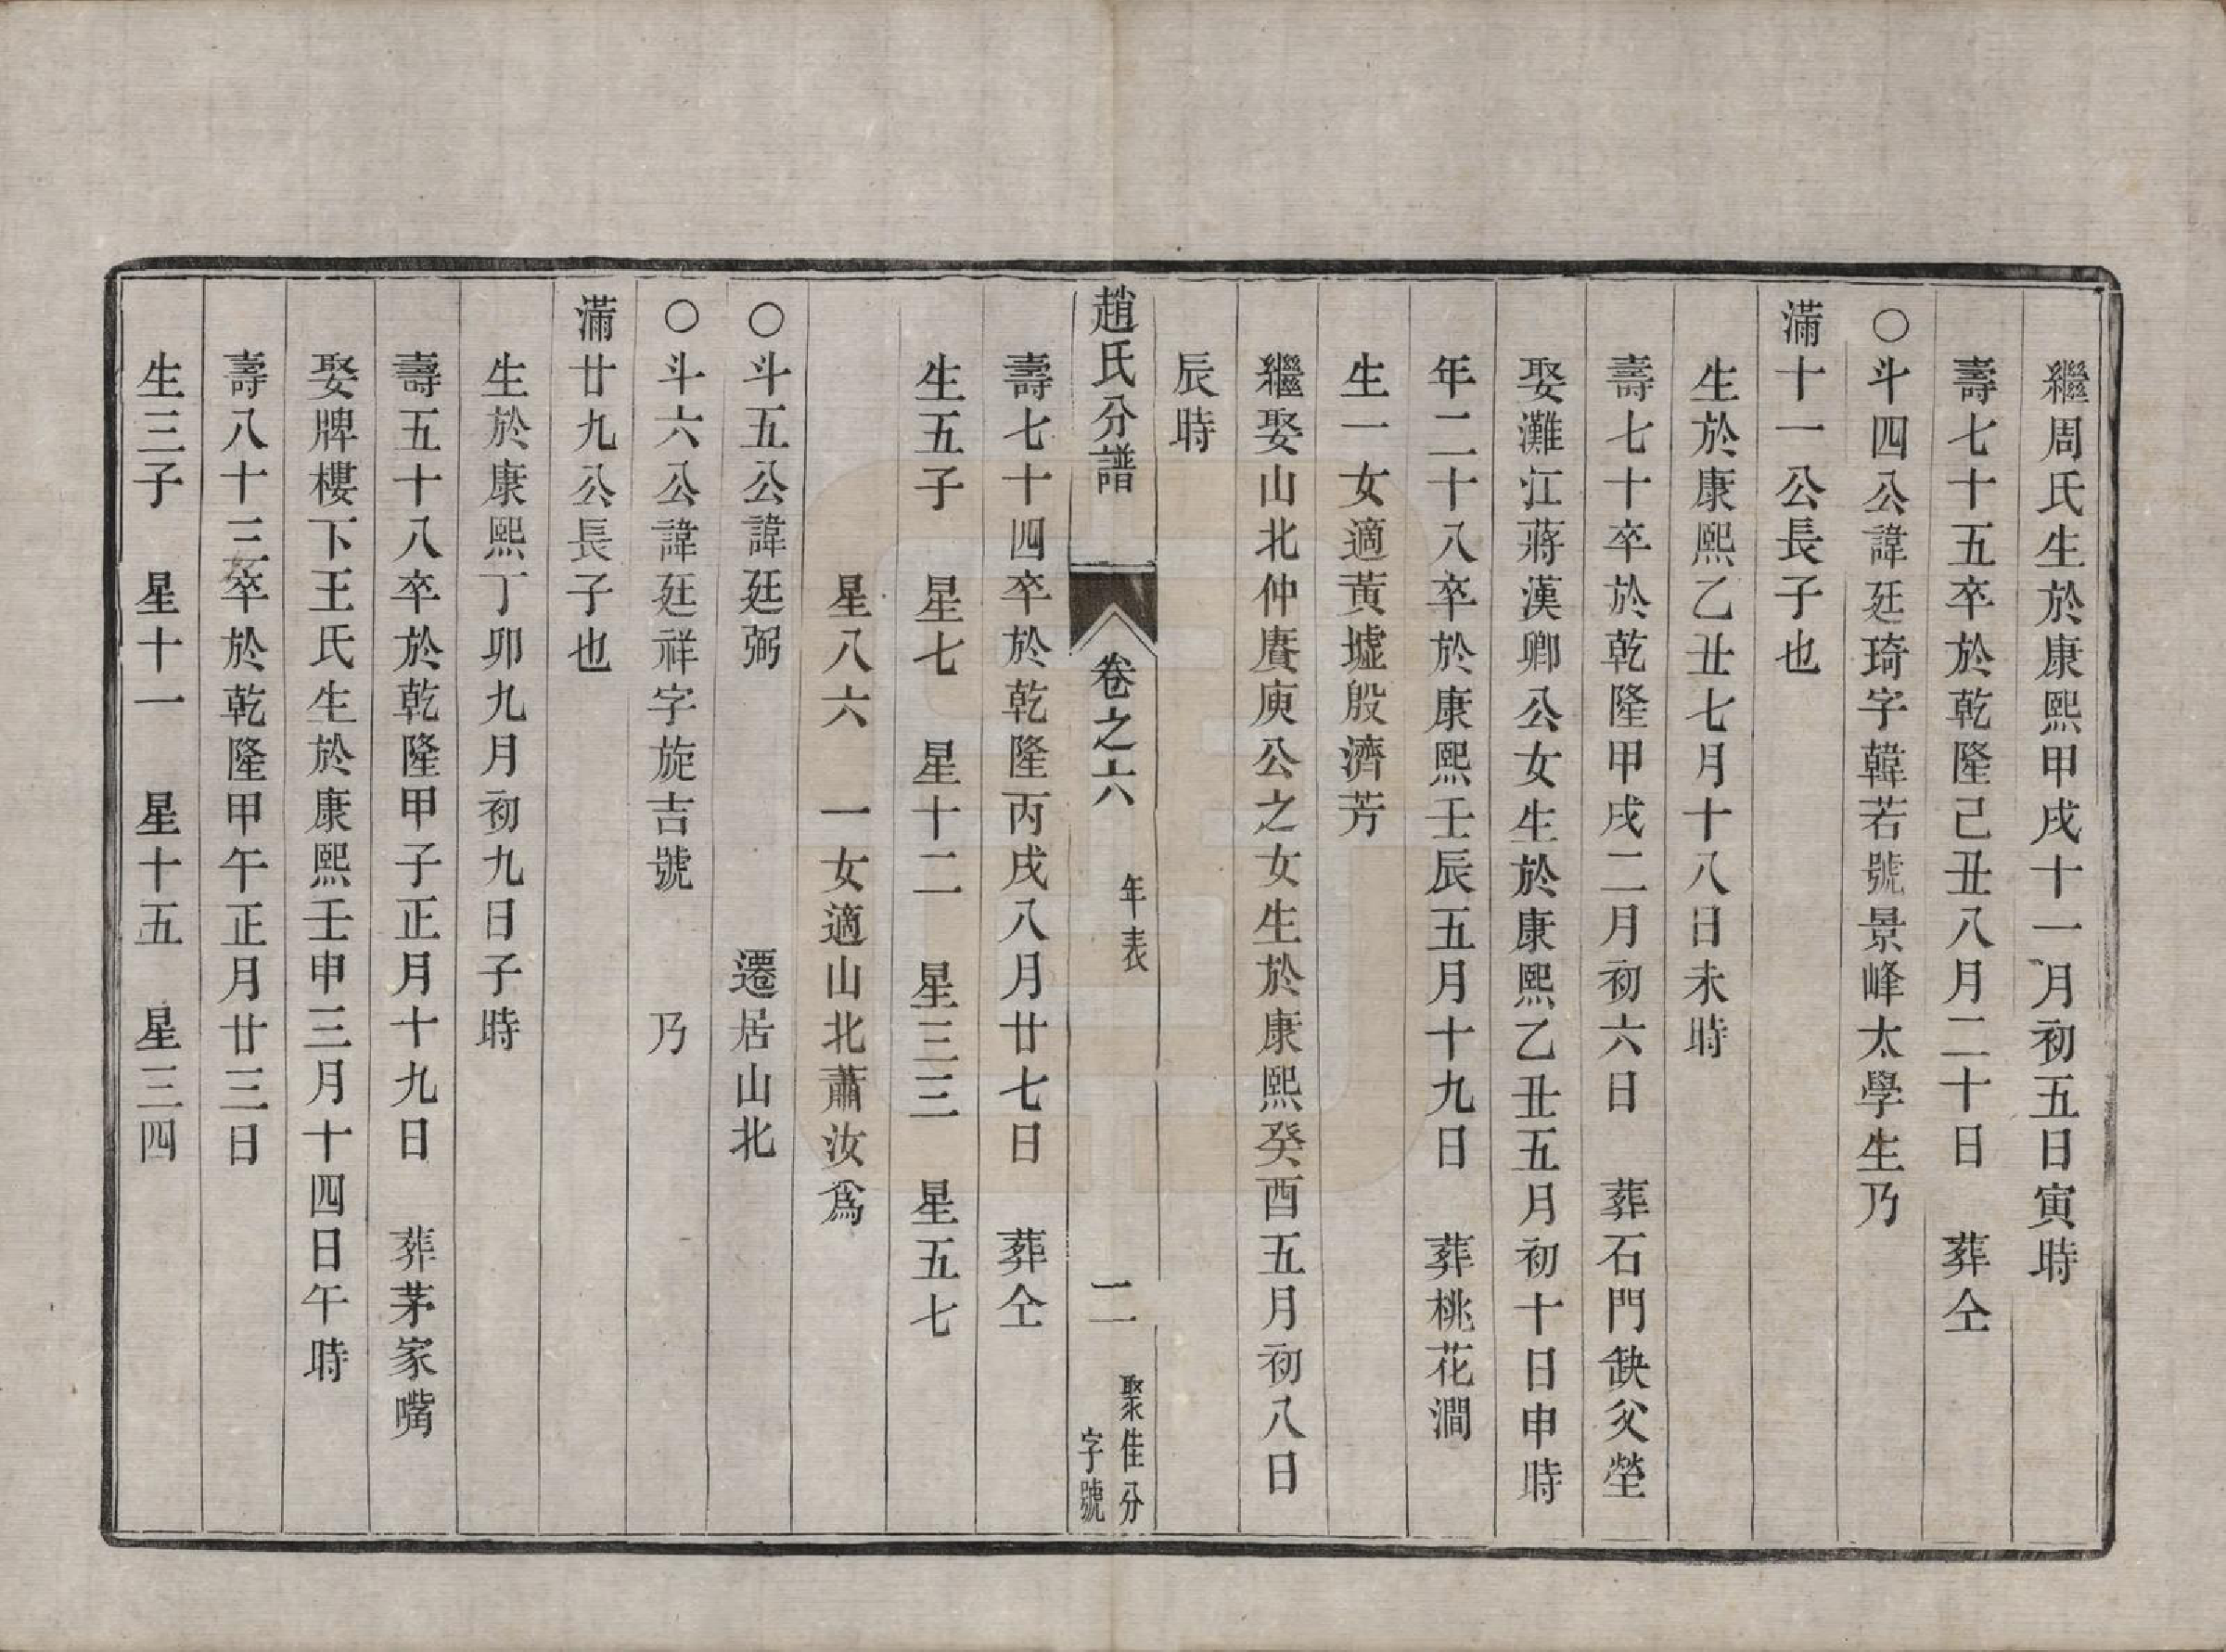 繼周氏生於康熙甲戌十一月初五日寅時
壽七十五卒於乾隆己丑八月二十日　葬仝
○斗四公諱廷琦字韓若號景峰太學生乃
滿十一公長子也
生於康熙乙丑七月十八日未時
壽七十卒於乾隆甲戌二月初六日　葬石門缺父塋
娶灘江蔣漢卿公女生於康熙乙丑五月初十日申時
年二十八卒於康熙壬辰五月十九日　葬桃花澗
生一女適黃墟殷濟芳
繼娶山北仲賡庾公之女生於康熙癸酉五月初八日
辰時
趙氏分譜　卷之六　年表　二　聚佳分字號
壽七十四卒於乾隆丙戌八月廿七日　葬仝
生五子　星七　星十二　星三三　星五七
星八六　一女適山北蕭汝爲
○斗五公諱廷弼　遷居山北
○斗六公諱廷祥字旋吉號　乃
滿廿九公長子也
生於康熙丁卯九月初九日子時
壽五十八卒於乾隆甲子正月十九日　葬茅家嘴
娶牌樓下王氏生於康熙壬申三月十四日午時
壽八十三卒於乾隆甲午正月廿三日
生三子　星十一　星十五　星三四